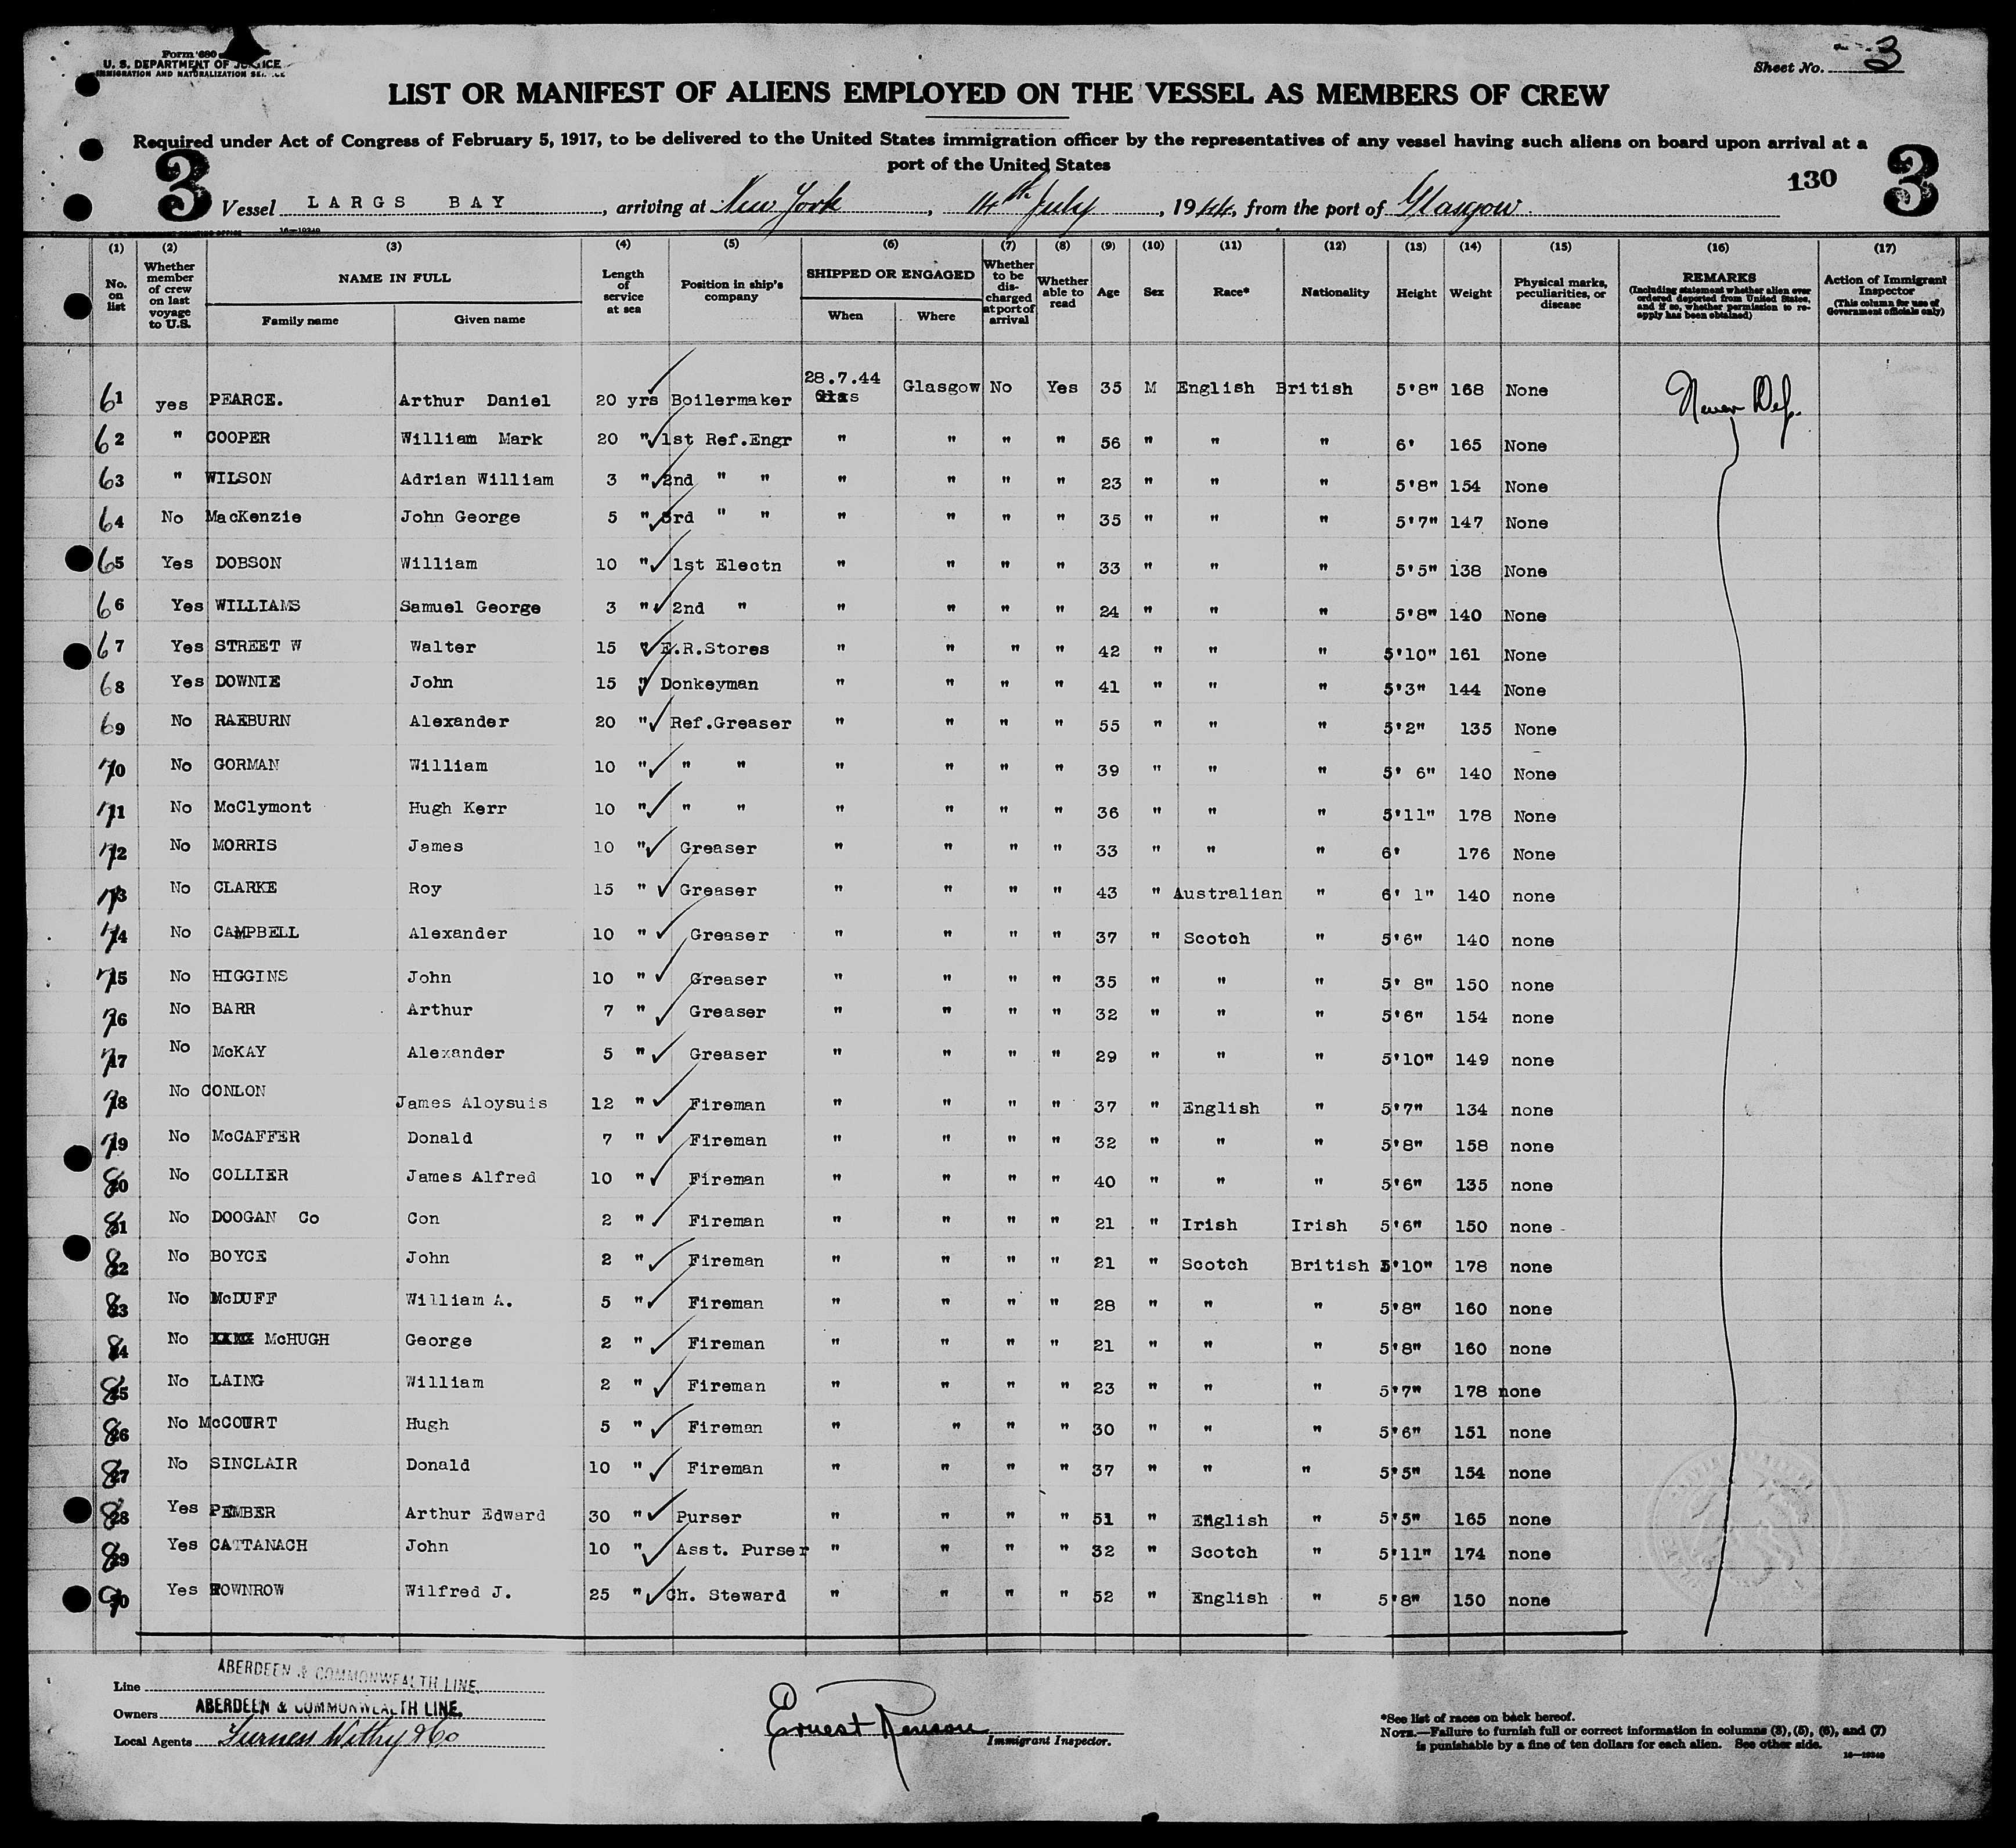 Form 680
U. S. DEPARTMENT OF JUSTICE
IMMIGRATION AND NATURALIZATION
Sheet No. 3
LIST OR MANIFEST OF ALIENS EMPLOYED ON THE VESSEL AS MEMBERS OF CREW
Required under Act of Congress of February 5, 1917, to be delivered to the United States immigration officer by the representatives of any vessel having such aliens on board upon arrival at a
port of the United States
3 130 3
Vessel LARGS BAY, arriving at New York, 14th July, 1944, from the port of Glasgow
(1) (2) (3) (4) (5) (6) (7) (8) (9) (10) (11) (12) (13) (14) (15) (16) (17)
No. on list
Whether member of crew on last voyage to U.S.
NAME IN FULL
Family name Given name
Length of service at sea
Position in ship's company
SHIPPED OR ENGAGED
When Where
Whether to be discharged at port of arrival
Whether able to read
Age
Sex
Race*
Nationality
Height
Weight
Physical marks, peculiarities, or disease
REMARKS
(Including statement whether alien ever ordered deported from United States, and if so, whether permission to re-apply has been obtained)
Action of Immigrant Inspector
(This column for use of Government officials only)
61 yes PEARCE. Arthur Daniel 20 yrs Boilermaker 28.7.44 Glasgow No Yes 35 M English British 5'8" 168 None Never Dep.
62 " COOPER William Mark 20 " 1st Ref.Engr " " " " 56 " " " 6' 165 None
63 " WILSON Adrian William 3 " 2nd " " " " " " 23 " " " 5'8" 154 None
64 No MacKenzie John George 5 " 3rd " " " " " " 35 " " " 5'7" 147 None
65 Yes DOBSON William 10 " 1st Electn " " " " 33 " " " 5'5" 138 None
66 Yes WILLIAMS Samuel George 3 " 2nd " " " " " 24 " " " 5'8" 140 None
67 Yes STREET W Walter 15 " E.R.Stores " " " " 42 " " " 5'10" 161 None
68 Yes DOWNIE John 15 " Donkeyman " " " " 41 " " " 5'3" 144 None
69 No RAEBURN Alexander 20 " Ref.Greaser " " " " 55 " " " 5'2" 135 None
70 No GORMAN William 10 " " " " " " " 39 " " " 5' 6" 140 None
71 No McClymont Hugh Kerr 10 " " " " " " " 36 " " " 5'11" 178 None
72 No MORRIS James 10 " Greaser " " " " 33 " " " 6' 176 None
73 No CLARKE Roy 15 " Greaser " " " " 43 " Australian " 6' 1" 140 none
74 No CAMPBELL Alexander 10 " Greaser " " " " 37 " Scotch " 5'6" 140 none
75 No HIGGINS John 10 " Greaser " " " " 35 " " " 5' 8" 150 none
76 No BARR Arthur 7 " Greaser " " " " 32 " " " 5'6" 154 none
77 No McKAY Alexander 5 " Greaser " " " " 29 " " " 5'10" 149 none
78 No CONLON James Aloysuis 12 " Fireman " " " " 37 " English " 5'7" 134 none
79 No McCAFFER Donald 7 " Fireman " " " " 32 " " " 5'8" 158 none
80 No COLLIER James Alfred 10 " Fireman " " " " 40 " " " 5'6" 135 none
81 No DOOGAN Co Con 2 " Fireman " " " " 21 " Irish Irish 5'6" 150 none
82 No BOYCE John 2 " Fireman " " " " 21 " Scotch British 5'10" 178 none
83 No McDUFF William A. 5 " Fireman " " " " 28 " " " 5'8" 160 none
84 No McHUGH George 2 " Fireman " " " " 21 " " " 5'8" 160 none
85 No LAING William 2 " Fireman " " " " 23 " " " 5'7" 178 none
86 No McCOURT Hugh 5 " Fireman " " " " 30 " " " 5'6" 151 none
87 No SINCLAIR Donald 10 " Fireman " " " " 37 " " " 5'5" 154 none
88 Yes PEMBER Arthur Edward 30 " Purser " " " " 51 " English " 5'5" 165 none
89 Yes CATTANACH John 10 " Asst. Purser " " " " 32 " Scotch " 5'11" 174 none
90 Yes TOWNROW Wilfred J. 25 " Ch. Steward " " " " 52 " English " 5'8" 150 none
Line ABERDEEN & COMMONWEALTH LINE.
Owners ABERDEEN & COMMONWEALTH LINE.
Local Agents Furness Withy & Co
Ernest Renson
Immigrant Inspector.
*See list of races on back hereof.
NOTE.—Failure to furnish full or correct information in columns (3), (5), (6), and (7)
is punishable by a fine of ten dollars for each alien. See other side.
16—19349